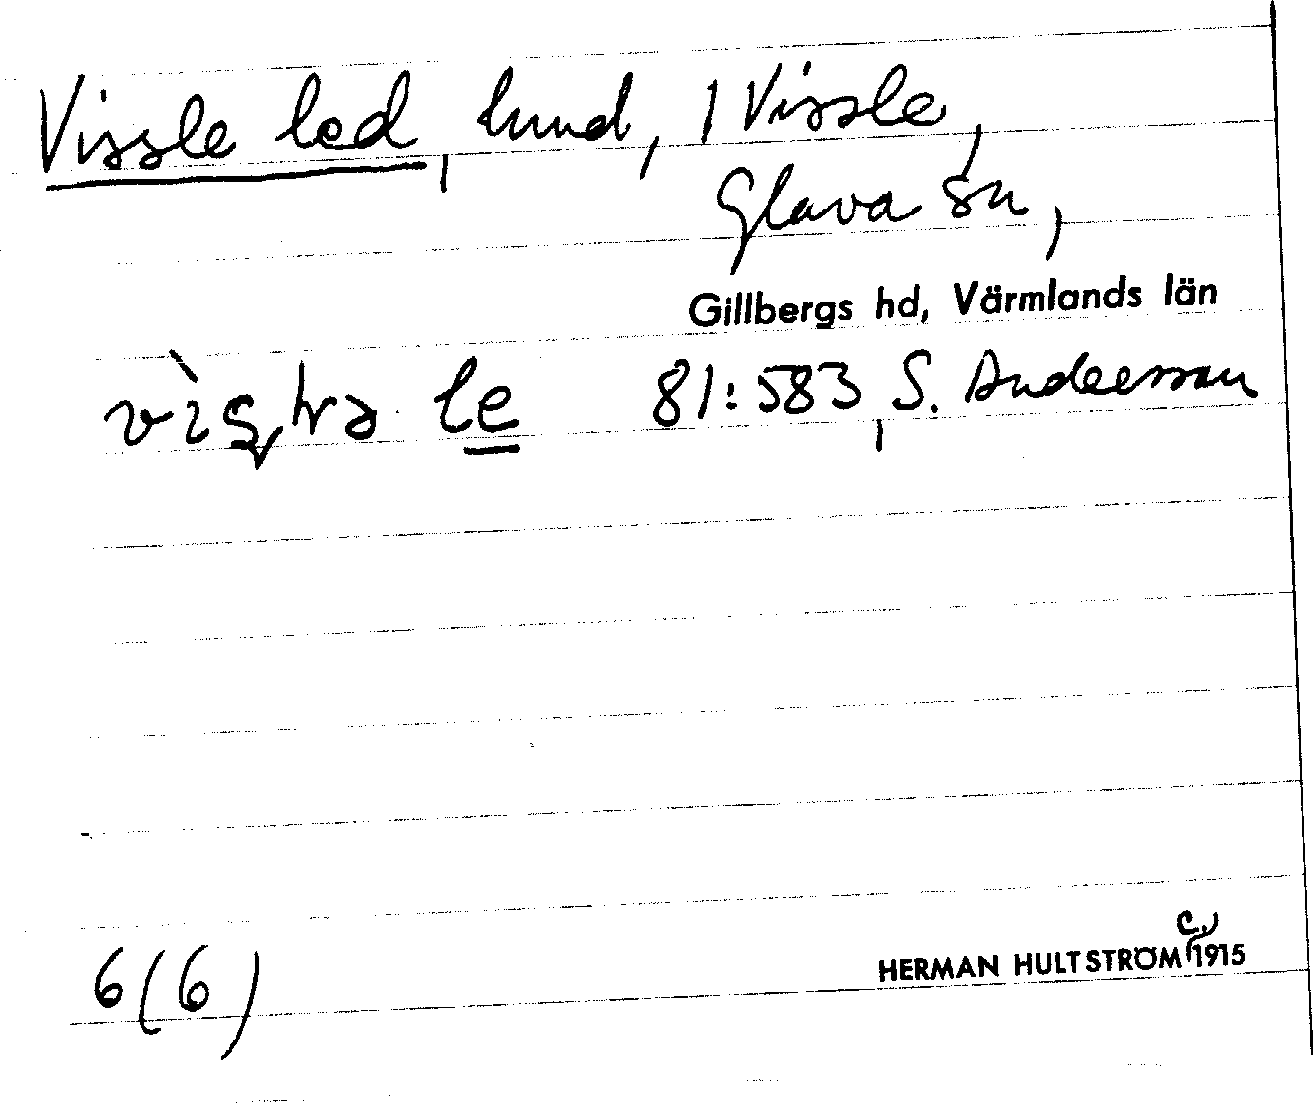 Vissle led, lund, 1 Vissle,
Glava sn,
Gillbergs hd, Värmlands län
le 81:583, S. Andersson
6(6)
HERMAN HULTSTRÖM c. 1915